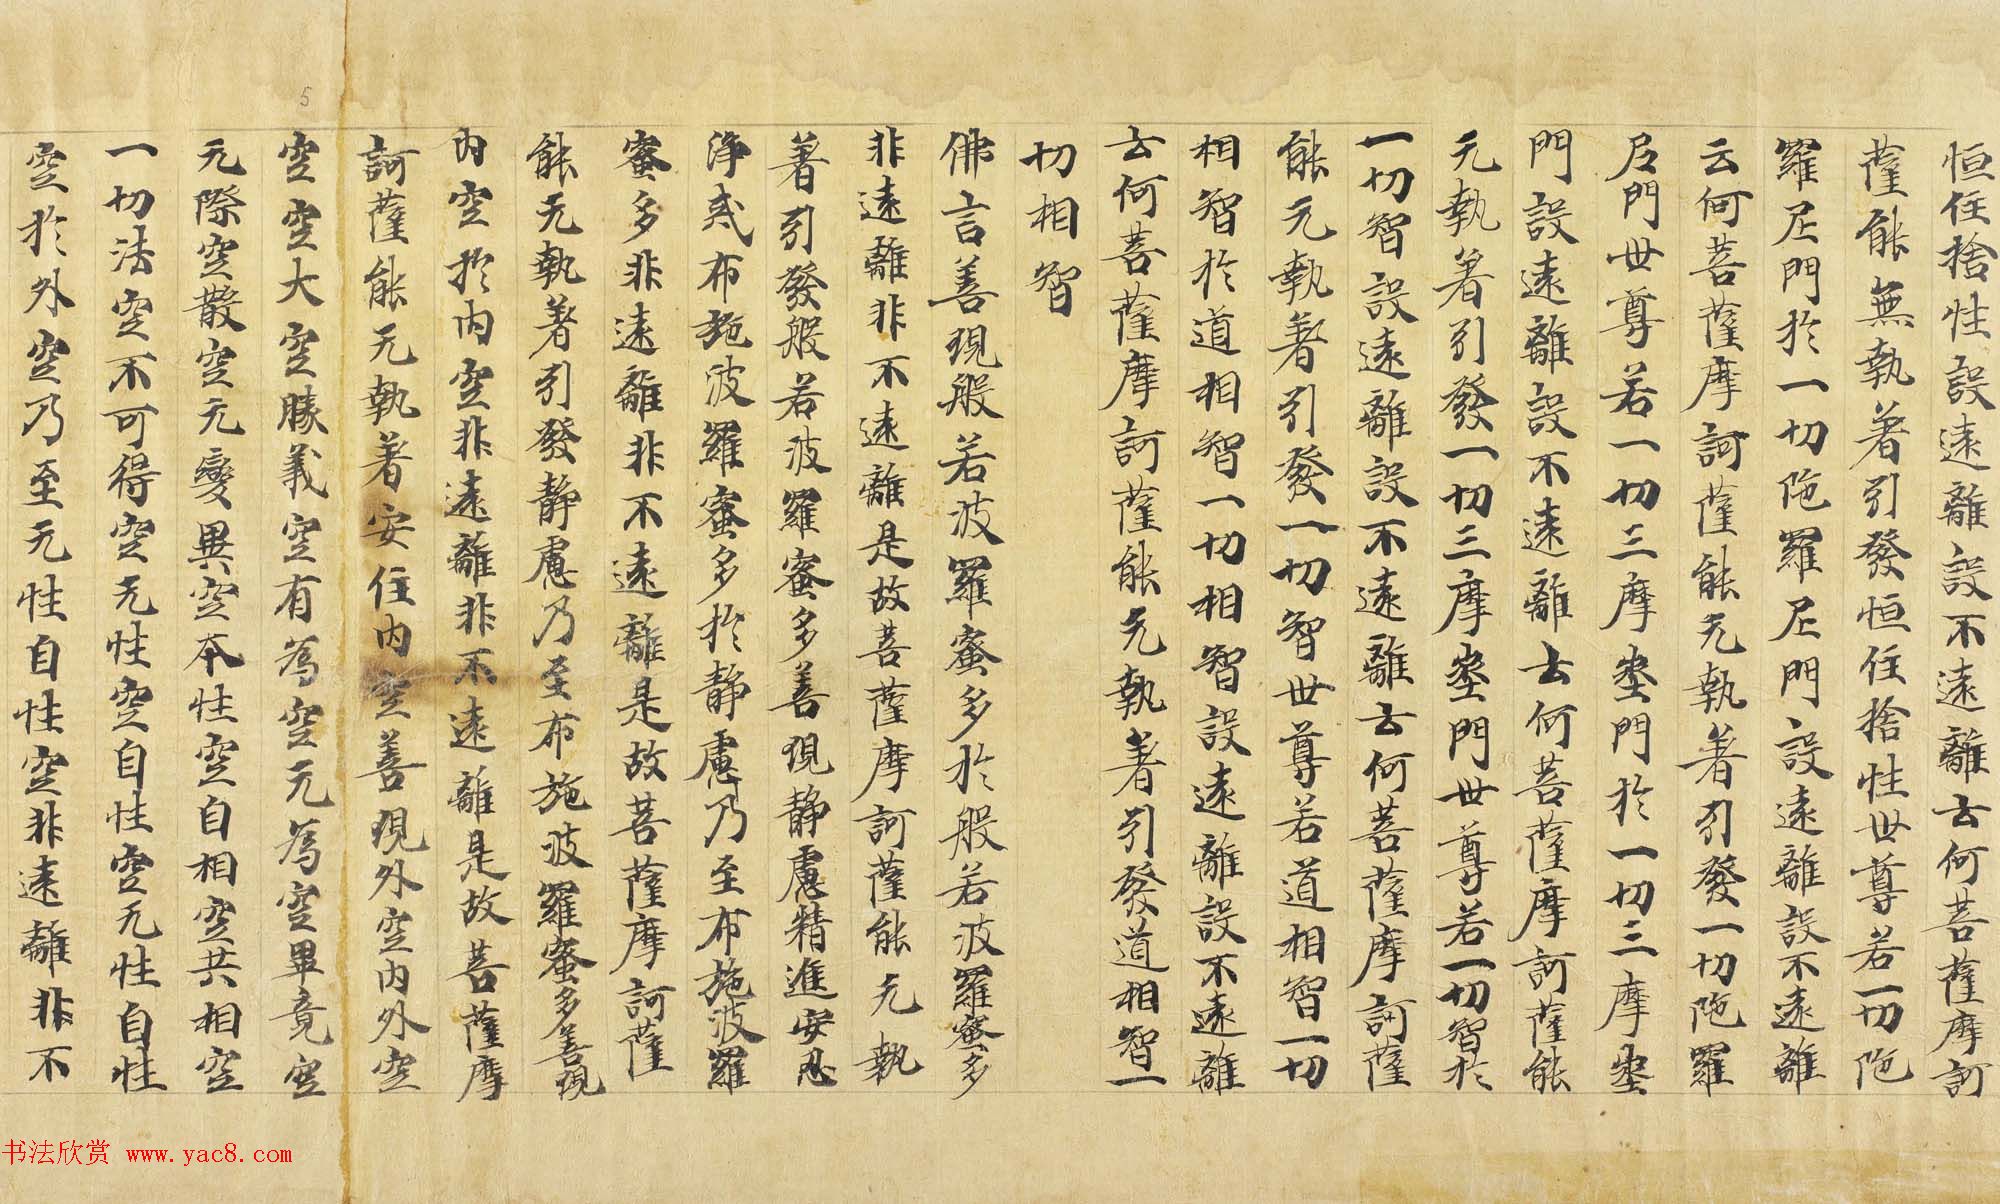 恒住捨性設遠離設不遠離云何菩薩摩訶
薩能無執著引發恒住捨性世尊若一切陁
羅尼門於一切陁羅尼門設遠離設不遠離
云何菩薩摩訶薩能无執著引發一切陁羅
尼門世尊若一切三摩地門於一切三摩地
門設遠離設不遠離云何菩薩摩訶薩能
无執著引發一切三摩地門世尊若一切智於
一切智設遠離設不遠離云何菩薩摩訶薩
能无執著引發一切智世尊若道相智一切
相智於道相智一切相智設遠離設不遠離
云何菩薩摩訶薩能无執著引發道相智一
切相智
佛言善現般若波羅蜜多於般若波羅蜜多
非遠離非不遠離是故菩薩摩訶薩能无執
著引發般若波羅蜜多善現静慮精進安忍
淨戒布施波羅蜜多於静慮乃至布施波羅
蜜多非遠離非不遠離是故菩薩摩訶薩
能无執著引發静慮乃至布施波羅蜜多善現
內空於內空非遠離非不遠離是故菩薩摩
訶薩能无執著安住內空善現外空內外空
空空大空勝義空有為空无為空畢竟空
无際空散空无變異空本性空自相空共相空
一切法空不可得空无性空自性空无性自性
空於外空乃至无性自性空非遠離非不
5
书法欣赏 www.yac8.com